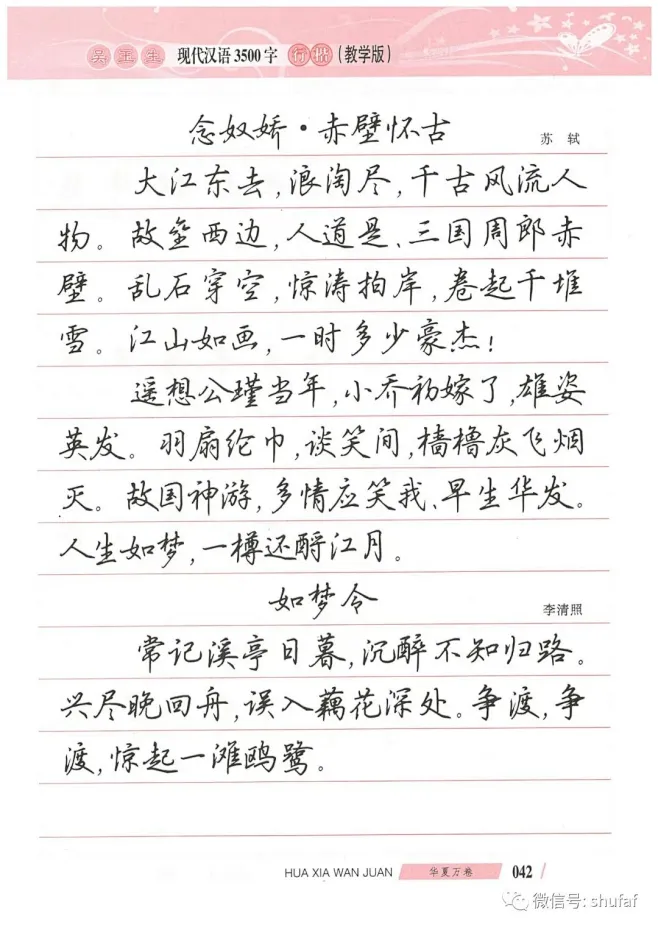 吴玉生 现代汉语3500字 行楷 (教学版)
念奴娇·赤壁怀古
苏 轼
大江东去,浪淘尽,千古风流人
物。故垒西边,人道是、三国周郎赤
壁。乱石穿空,惊涛拍岸,卷起千堆
雪。江山如画,一时多少豪杰!
遥想公瑾当年,小乔初嫁了,雄姿
英发。羽扇纶巾,谈笑间,樯橹灰飞烟
灭。故国神游,多情应笑我、早生华发。
人生如梦,一樽还酹江月。
如梦令
李清照
常记溪亭日暮,沉醉不知归路。
兴尽晚回舟,误入藕花深处。争渡,争
渡,惊起一滩鸥鹭。
HUA XIA WAN JUAN 华夏万卷 042
微信号: shufaf